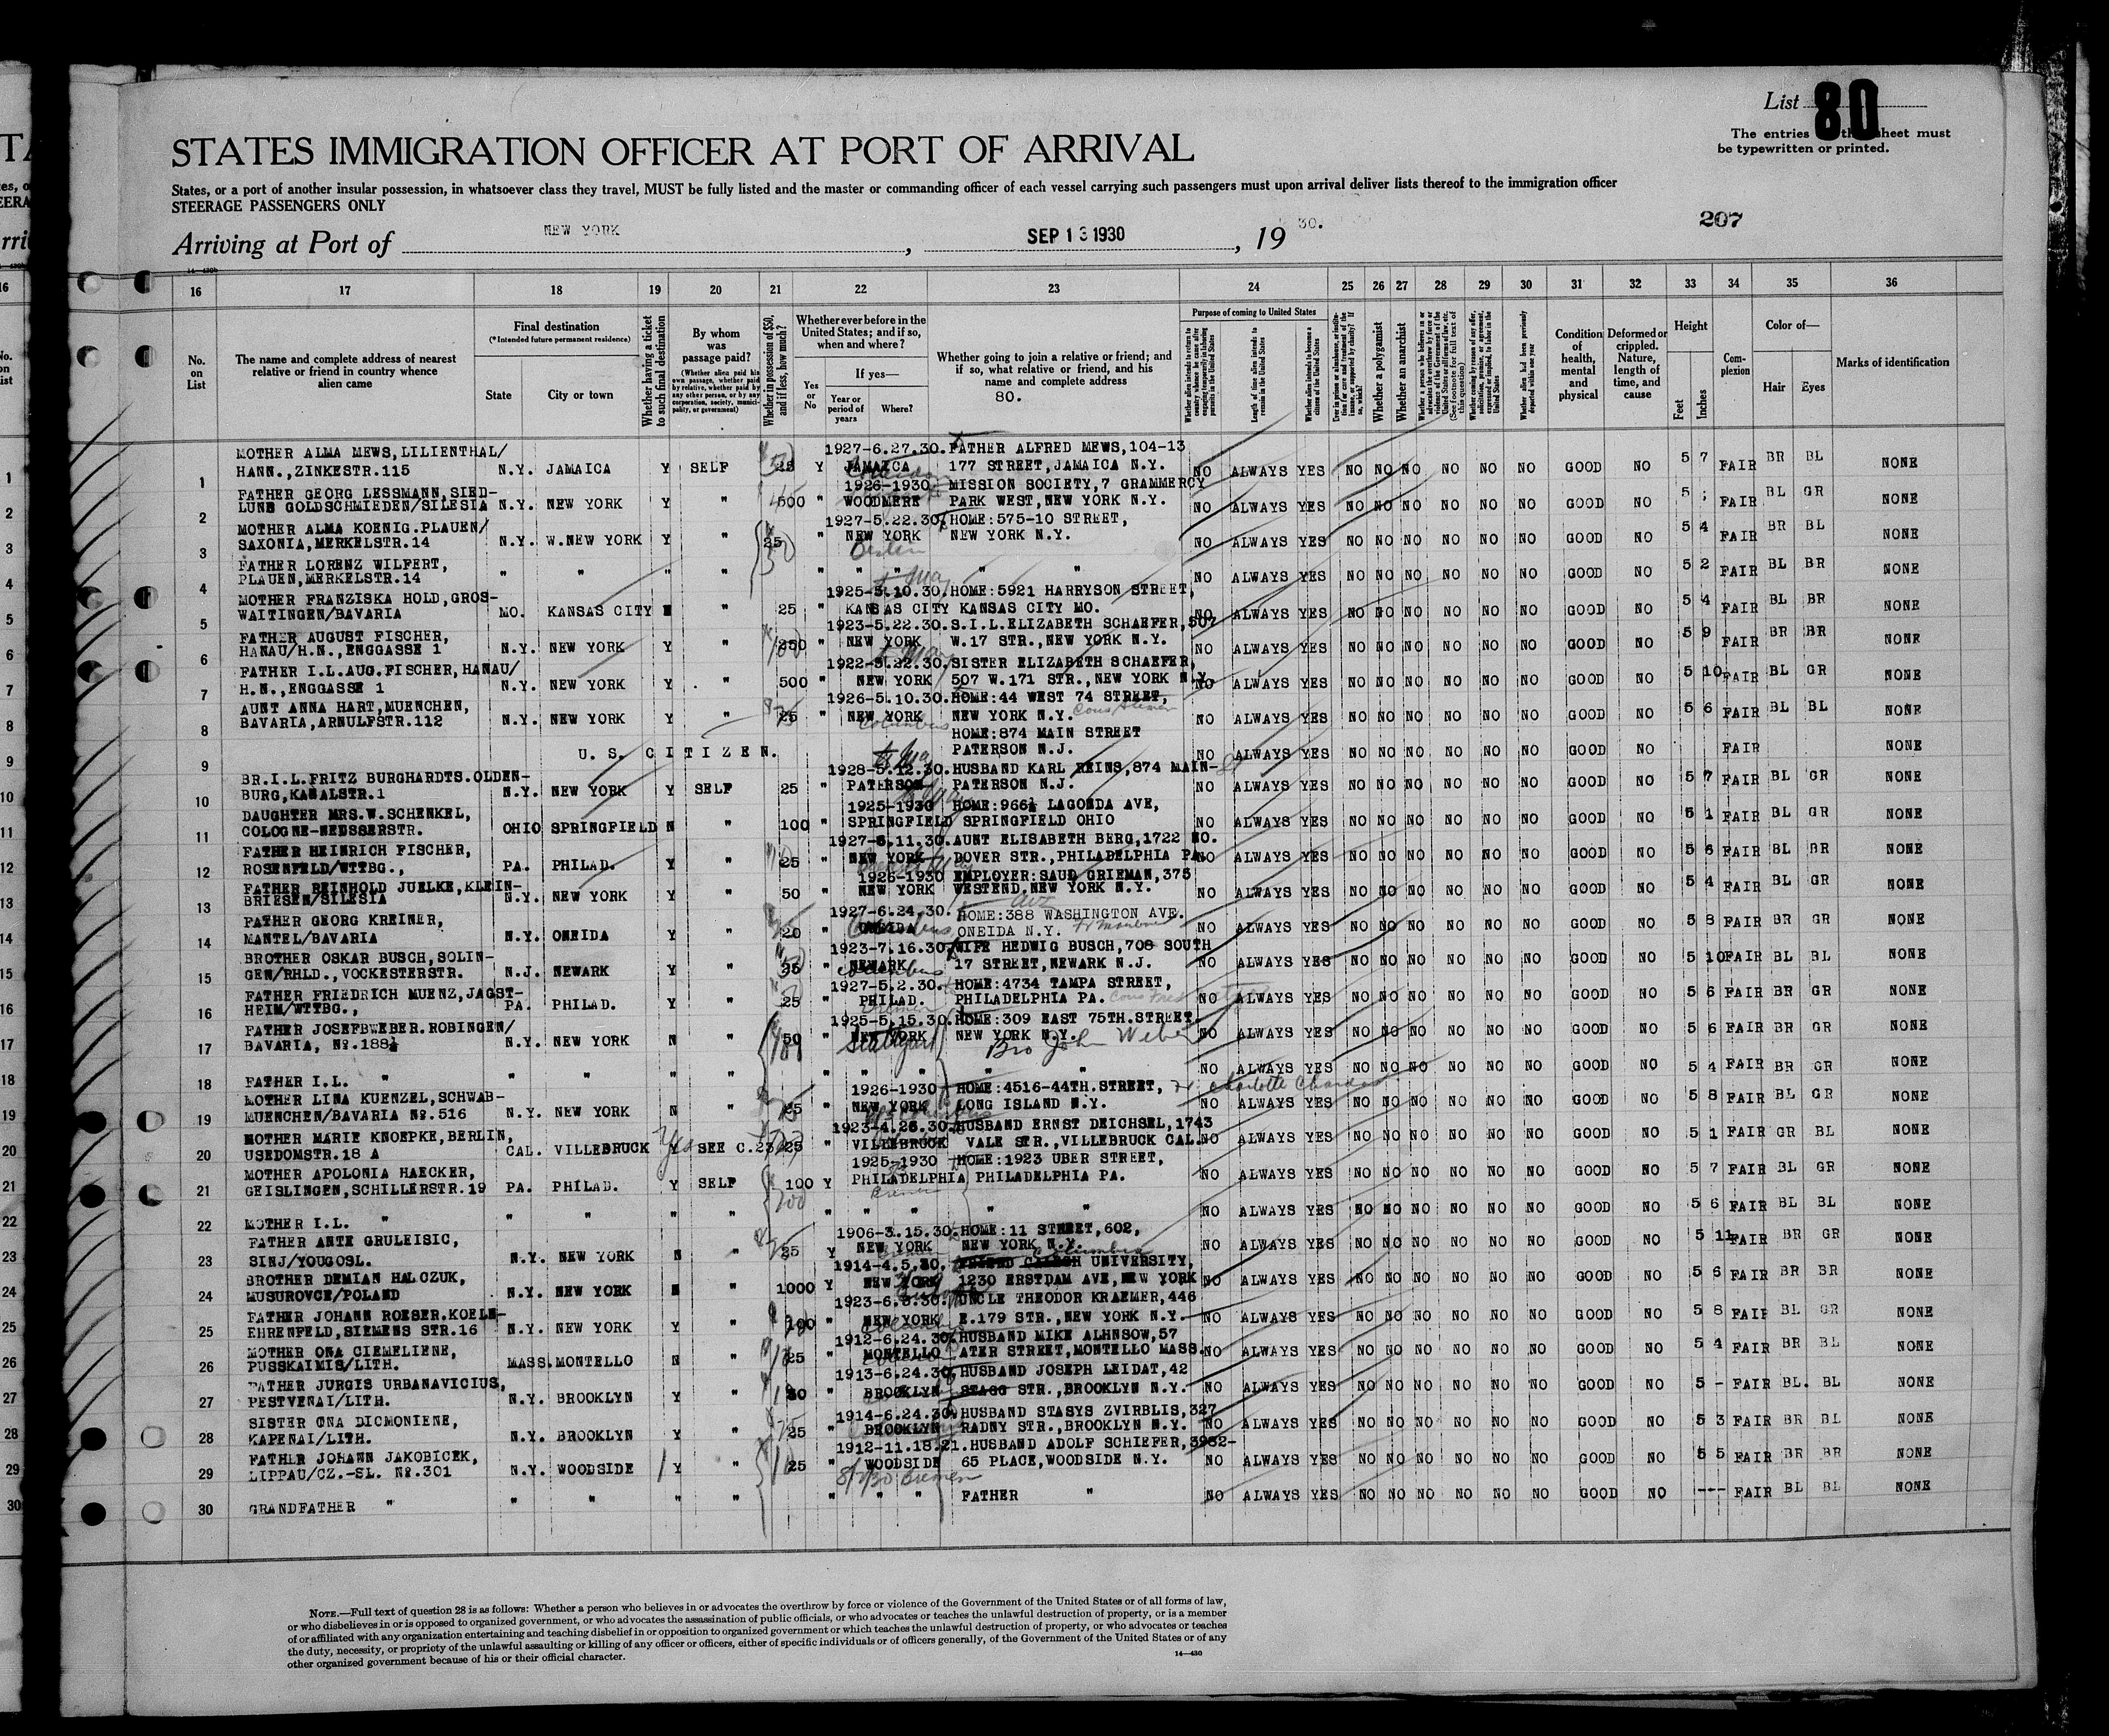 List 80
The entries on this sheet must
be typewritten or printed.
STATES IMMIGRATION OFFICER AT PORT OF ARRIVAL
States, or a port of another insular possession, in whatsoever class they travel, MUST be fully listed and the master or commanding officer of each vessel carrying such passengers must upon arrival deliver lists thereof to the immigration officer
STEERAGE PASSENGERS ONLY
207
Arriving at Port of NEW YORK, SEP 13 1930, 19 30.
16 17 18 19 20 21 22 23 24 25 26 27 28 29 30 31 32 33 34 35 36
No. on List
The name and complete address of nearest relative or friend in country whence alien came
Final destination
(*Intended future permanent residence)
State
City or town
Whether having a ticket to such final destination
By whom was passage paid?
(Whether alien paid his own passage, whether paid by relative, whether paid by any other person, or by any corporation, society, municipality, or government)
Whether in possession of $50, and if less, how much?
Whether ever before in the United States; and if so, when and where?
Yes or No
If yes—
Year or period of years
Where?
Whether going to join a relative or friend; and if so, what relative or friend, and his name and complete address
80.
Purpose of coming to United States
Length of time alien intends to remain in the United States
Whether alien intends to become a citizen of the United States
Whether a polygamist
Whether an anarchist
Condition of health, mental and physical
Deformed or crippled. Nature, length of time, and cause
Height
Feet
Inches
Complexion
Color of—
Hair
Eyes
Marks of identification
MOTHER ALMA MEWS, LILIENTHAL/ 1927-6.27.30. FATHER ALFRED MEWS, 104-13
1 HANN., ZINKESTR.115 N.Y. JAMAICA Y SELF 25 Y JAMAICA 177 STREET, JAMAICA N.Y. NO ALWAYS YES NO NO NO NO NO NO GOOD NO 5 7 FAIR BR BL NONE
FATHER GEORG LESSMANN, SIED- 1926-1930 MISSION SOCIETY, 7 GRAMMERCY
2 LUNG GOLDSCHMIEDEN/SILESIA N.Y. NEW YORK Y " 500 " WOODMERE PARK WEST, NEW YORK N.Y. NO ALWAYS YES NO NO NO NO NO NO GOOD NO 5 FAIR BL GR NONE
MOTHER ALMA KOENIG.PLAUEN/ 1927-5.22.30. HOME:575-10 STREET,
3 SAXONIA, MERKELSTR.14 N.Y. W.NEW YORK Y " 25 " NEW YORK NEW YORK N.Y. NO ALWAYS YES NO NO NO NO NO NO GOOD NO 5 4 FAIR BR BL NONE
FATHER LORENZ WILFERT,
4 PLAUEN, MERKELSTR.14 " " " " " " " " " NO ALWAYS YES NO NO NO NO NO NO GOOD NO 5 2 FAIR BL BR NONE
MOTHER FRANZISKA HOLD, GROS- 1925-5.10.30. HOME:5921 HARRYSON STREET,
5 WAITINGEN/BAVARIA MO. KANSAS CITY N " 25 " KANSAS CITY KANSAS CITY MO. NO ALWAYS YES NO NO NO NO NO NO GOOD NO 5 4 FAIR BL BR NONE
FATHER AUGUST FISCHER, 1923-5.22.30. S.I.L. ELIZABETH SCHAEFER, 507
6 HANAU/H.N., ENGGASSE 1 N.Y. NEW YORK Y " 250 " NEW YORK W.17 STR., NEW YORK N.Y. NO ALWAYS YES NO NO NO NO NO NO GOOD NO 5 9 FAIR BR BR NONE
FATHER I.L.AUG.FISCHER, HANAU/ 1922-5.22.30. SISTER ELIZABETH SCHAEFER,
7 H.N., ENGGASSE 1 N.Y. NEW YORK Y " 500 " NEW YORK 507 W.171 STR., NEW YORK N.Y. NO ALWAYS YES NO NO NO NO NO NO GOOD NO 5 10 FAIR BL GR NONE
AUNT ANNA HART, MUENCHEN, 1926-5.10.30. HOME:44 WEST 74 STREET,
8 BAVARIA, ARNULFSTR.112 N.Y. NEW YORK Y " 25 " NEW YORK NEW YORK N.Y. NO ALWAYS YES NO NO NO NO NO NO GOOD NO 5 6 FAIR BL BL NONE
Columbus
HOME:874 MAIN STREET
9 U.S. CITIZEN. PATERSON N.J. NO ALWAYS YES NO NO NO NO NO NO GOOD NO FAIR NONE
BR.I.L.FRITZ BURGHARDTS.OLDEN- 1928-5.12.30. HUSBAND KARL HEINS, 874 MAIN-
10 BURG, KANALSTR.1 N.Y. NEW YORK Y SELF 25 " PATERSON PATERSON N.J. NO ALWAYS YES NO NO NO NO NO NO GOOD NO 5 7 FAIR BL GR NONE
DAUGHTER MRS.W.SCHENKEL, 1925-1930 HOME:966½ LAGONDA AVE,
11 COLOGNE-NEUSSERSTR. OHIO SPRINGFIELD N " 100 " SPRINGFIELD SPRINGFIELD OHIO NO ALWAYS YES NO NO NO NO NO NO GOOD NO 5 1 FAIR BL GR NONE
FATHER HEINRICH FISCHER, 1927-5.11.30. AUNT ELISABETH BERG, 1722 NO.
12 ROSENFELD/WTTBG., PA. PHILAD. Y " 25 " NEW YORK DOVER STR., PHILADELPHIA PA. NO ALWAYS YES NO NO NO NO NO NO GOOD NO 5 6 FAIR BL BR NONE
FATHER REINHOLD JUELKE, KLEIN- 1926-1930 EMPLOYER:SAUD GRIEMAN, 375
13 BRIESEN/SILESIA N.Y. NEW YORK Y " 50 " NEW YORK WESTEND, NEW YORK N.Y. NO ALWAYS YES NO NO NO NO NO NO GOOD NO 5 4 FAIR BL GR NONE
Ave
FATHER GEORG KREINER, 1927-6.24.30. HOME:388 WASHINGTON AVE.
14 MANTEL/BAVARIA N.Y. ONEIDA Y " 20 " ONEIDA ONEIDA N.Y. NO ALWAYS YES NO NO NO NO NO NO GOOD NO 5 8 FAIR BR GR NONE
BROTHER OSKAR BUSCH, SOLIN- 1923-7.16.30. WIFE HEDWIG BUSCH, 708 SOUTH
15 GEN/RHLD., VOCKESTERSTR. N.J. NEWARK Y " 35 " NEWARK 17 STREET, NEWARK N.J. NO ALWAYS YES NO NO NO NO NO NO GOOD NO 5 10 FAIR BL BL NONE
FATHER FRIEDRICH MUENZ, JAGST- 1927-5.2.30. HOME:4734 TAMPA STREET,
16 HEIM/WTTBG., PA. PHILAD. Y " 25 " PHILAD. PHILADELPHIA PA. NO ALWAYS YES NO NO NO NO NO NO GOOD NO 5 6 FAIR BR GR NONE
FATHER JOSEFBWEBER.ROBINGEN/ 1925-5.15.30. HOME:309 EAST 75TH.STREET.
17 BAVARIA, No.188½ N.Y. NEW YORK N " 50 " NEW YORK NEW YORK N.Y. NO ALWAYS YES NO NO NO NO NO NO GOOD NO 5 6 FAIR BR GR NONE
Stuttgart Bro John Weber
18 FATHER I.L. " " " " " " " " " " NO ALWAYS YES NO NO NO NO NO NO GOOD NO 5 4 FAIR BR GR NONE
MOTHER LINA KUENZEL, SCHWAB- 1926-1930 HOME:4516-44TH.STREET,
19 MUENCHEN/BAVARIA No.516 N.Y. NEW YORK N " 25 " NEW YORK LONG ISLAND N.Y. NO ALWAYS YES NO NO NO NO NO NO GOOD NO 5 8 FAIR BL GR NONE
MOTHER MARIE KNOEPKE, BERLIN, 1923-4.26.30. HUSBAND ERNST DEICHSEL, 1743
20 USEDOMSTR.18 A CAL. VILLEBRUCK Yes Y SEE C.23 25 " VILLEBROOK VALE STR., VILLEBRUCK CAL. NO ALWAYS YES NO NO NO NO NO NO GOOD NO 5 1 FAIR GR BL NONE
MOTHER APOLONIA HAECKER, 1925-1930 HOME:1923 UBER STREET,
21 GEISLINGEN, SCHILLERSTR.19 PA. PHILAD. Y SELF 100 Y PHILADELPHIA PHILADELPHIA PA. NO ALWAYS YES NO NO NO NO NO NO GOOD NO 5 7 FAIR BL GR NONE
Bremen
22 MOTHER I.L. " " " " " " " " " NO ALWAYS YES NO NO NO NO NO NO GOOD NO 5 6 FAIR BL BL NONE
FATHER ANTE GRULEISIC, 1906-3.15.30. HOME:11 STREET, 602,
23 SINJ/YOUGOSL. N.Y. NEW YORK N " 25 Y NEW YORK NEW YORK N.Y. NO ALWAYS YES NO NO NO NO NO NO GOOD NO 5 11 FAIR BR GR NONE
Columbia
BROTHER DEMIAN HALCZUK, 1914-4.5.30. UNIVERSITY,
24 MUSUROVCE/POLAND N.Y. NEW YORK N " 1000 Y NEW YORK 1230 ERSTDAM AVE, NEW YORK NO ALWAYS YES NO NO NO NO NO NO GOOD NO 5 6 FAIR BR BR NONE
FATHER JOHANN ROESER.KOELN- 1923-6.5.30. UNCLE THEODOR KRAEMER, 446
25 EHRENFELD, SIEMENS STR.16 N.Y. NEW YORK Y " 100 " NEW YORK E.179 STR., NEW YORK N.Y. NO ALWAYS YES NO NO NO NO NO NO GOOD NO 5 8 FAIR BL GR NONE
MOTHER ONA CIEMELIENE, 1912-6.24.30. HUSBAND MIKE ALHNSOW, 57
26 PUSSKAIMIS/LITH. MASS. MONTELLO N " 25 " MONTELLO ATER STREET, MONTELLO MASS. NO ALWAYS YES NO NO NO NO NO NO GOOD NO 5 4 FAIR BR BL NONE
FATHER JURGIS URBANAVICIUS, 1913-6.24.30. HUSBAND JOSEPH LEIDAT, 42
27 PESTVENAI/LITH. N.Y. BROOKLYN Y " 30 " BROOKLYN STAGG STR., BROOKLYN N.Y. NO ALWAYS YES NO NO NO NO NO NO GOOD NO 5 - FAIR BL. BL NONE
SISTER ONA DICMONIENE, 1914-6.24.30. HUSBAND STASYS ZVIRBLIS, 327
28 KAPENAI/LITH. N.Y. BROOKLYN Y " 25 " BROOKLYN RADNY STR., BROOKLYN N.Y. NO ALWAYS YES NO NO NO NO NO NO GOOD NO 5 3 FAIR BR BL NONE
FATHER JOHANN JAKOBICEK, 1912-11.18.21. HUSBAND ADOLF SCHIEFER, 3982-
29 LIPPAU/CZ.-SL. No.301 N.Y. WOODSIDE Y " 25 " WOODSIDE 65 PLACE, WOODSIDE N.Y. NO ALWAYS YES NO NO NO NO NO NO GOOD NO 5 5 FAIR BR BR NONE
Bremen
30 GRANDFATHER " " " " " " " " FATHER " NO ALWAYS YES NO NO NO NO NO NO GOOD NO --- FAIR BL BL NONE
NOTE.—Full text of question 28 is as follows: Whether a person who believes in or advocates the overthrow by force or violence of the Government of the United States or of all forms of law,
or who disbelieves in or is opposed to organized government, or who advocates the assassination of public officials, or who advocates or teaches the unlawful destruction of property, or is a member
of or affiliated with any organization entertaining and teaching disbelief in or opposition to organized government or which teaches the unlawful destruction of property, or who advocates or teaches
the duty, necessity, or propriety of the unlawful assaulting or killing of any officer or officers, either of specific individuals or of officers generally, of the Government of the United States or of any
other organized government because of his or their official character.
14—430